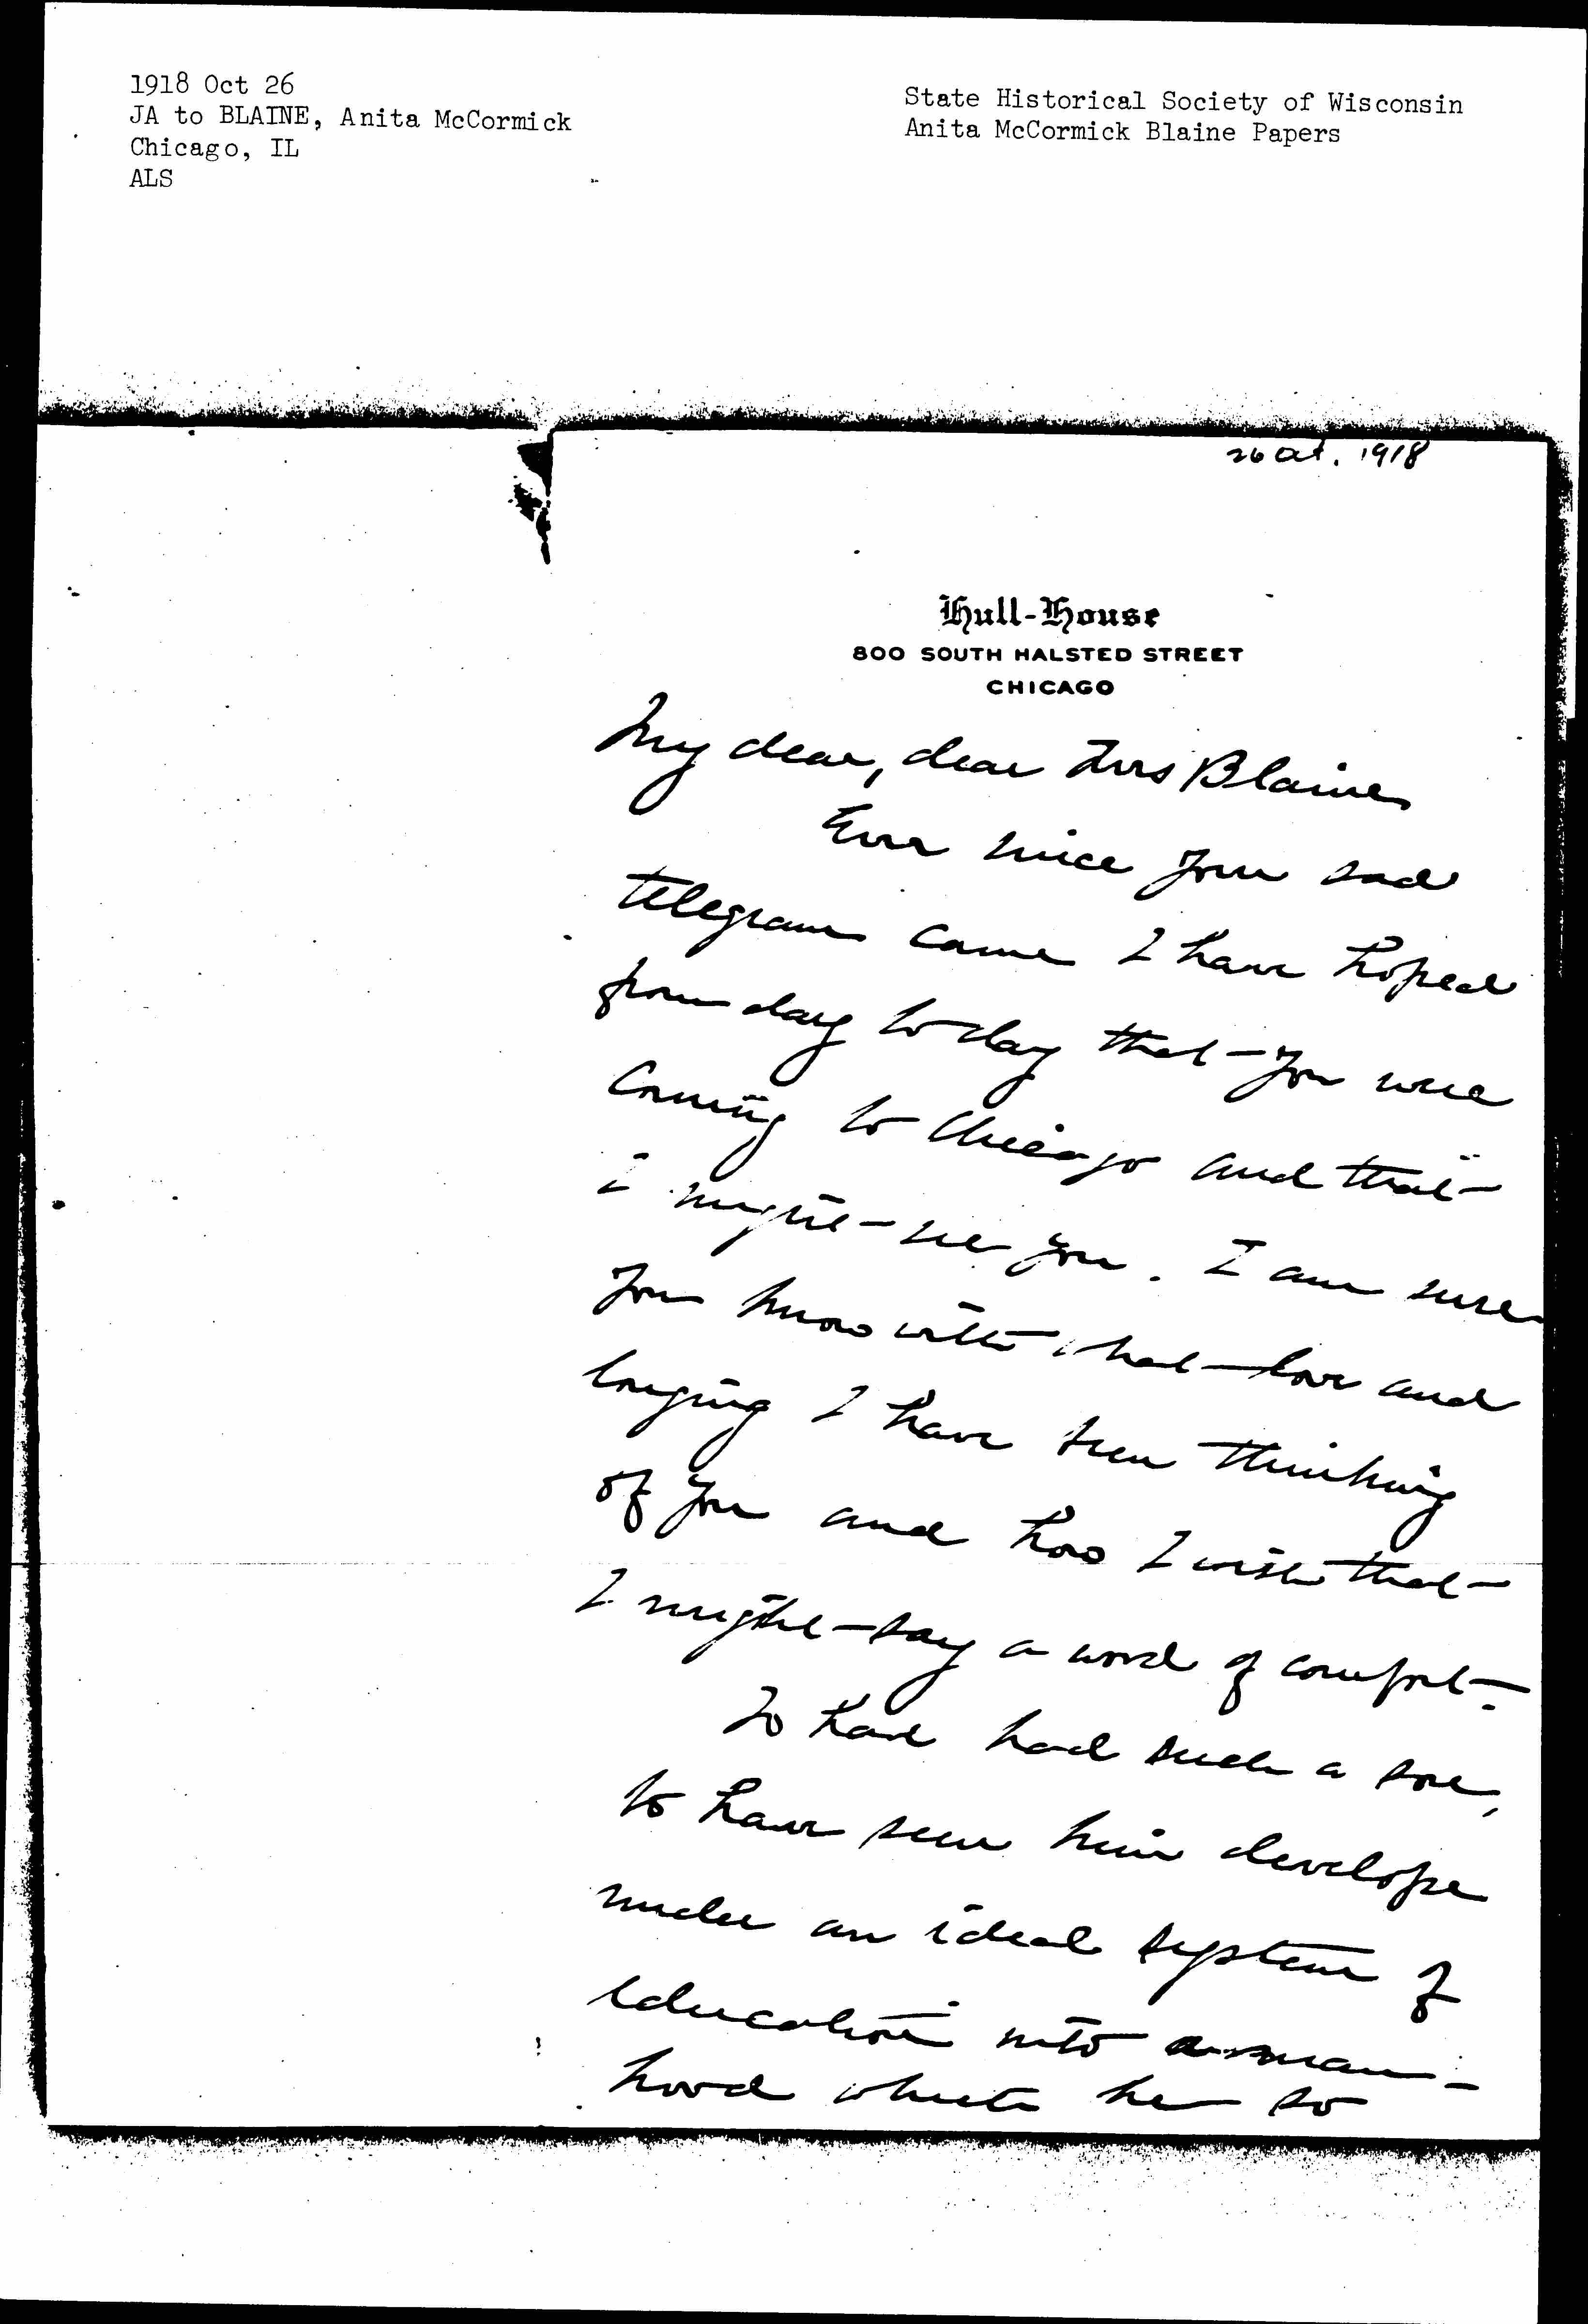 1918 Oct 26
JA to BLAINE, Anita McCormick
Chicago, IL
ALS
State Historical Society of Wisconsin
Anita McCormick Blaine Papers
26 Oct. 1918
Hull-House
800 SOUTH HALSTED STREET
CHICAGO
My dear, dear Mrs Blaine
Ever since your sad
telegram came I have hoped
from day to day that you were
coming to Chicago and that
I might see you. I am sure
you know with what love and
longing I have been thinking
of you and how I wish that
I might say a word of comfort.
To have had such a son,
to have seen him develope
under an ideal system of
education into a man-
hood which he so